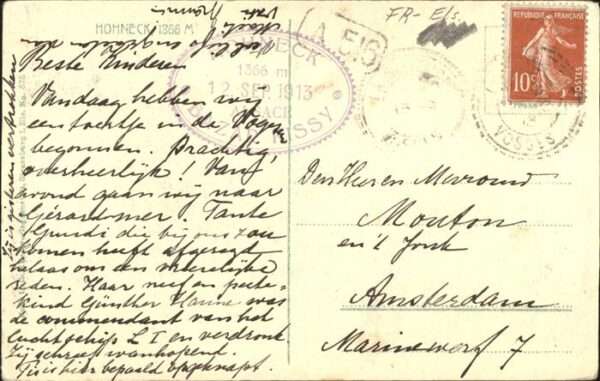 HOHNECK 1366 M
FR-Els.
HOHNECK
1366 m
12 SEP 1913
RÉPUBLIQUE FRANÇAISE
10c
POSTES
VOSGES
Beste kinderen
Vandaag hebben wij
een tochtje in de Vogezen
begonnen. Prachtig,
overheerlijk! Van
avond gaan wij naar
Gérardmer. Tante
Gundi die bij ons zou
komen heeft afgezegd
helaas om een vreeselijke
reden. Haar neef en peete-
kind Günther Hanne was
de commandant van het
luchtschip L I en verdronk
Zij schreef wanhopend.
Tis hier bepaald opgeknapt.
Den Heer en Mevrouw
Mouton
en 't Jonk
Amsterdam
Marinewerf 7